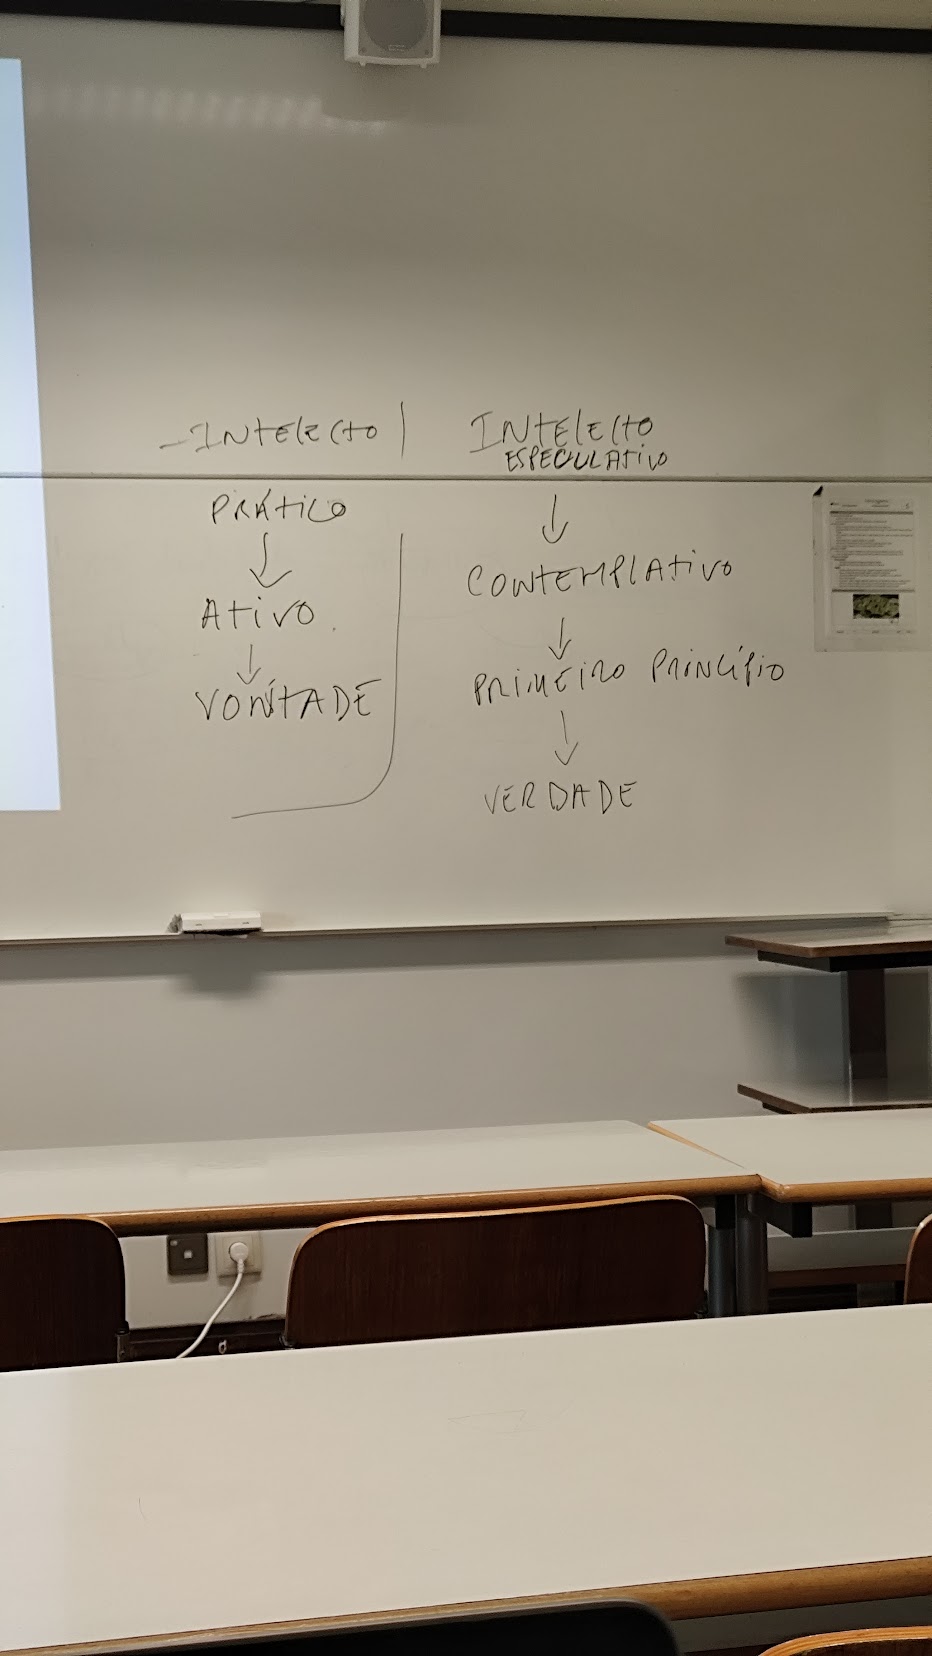 - INTELECTO
PRÁTICO
ATIVO
VONTADE
INTELECTO
ESPECULATIVO
CONTEMPLATIVO
PRIMEIRO PRINCÍPIO
VERDADE